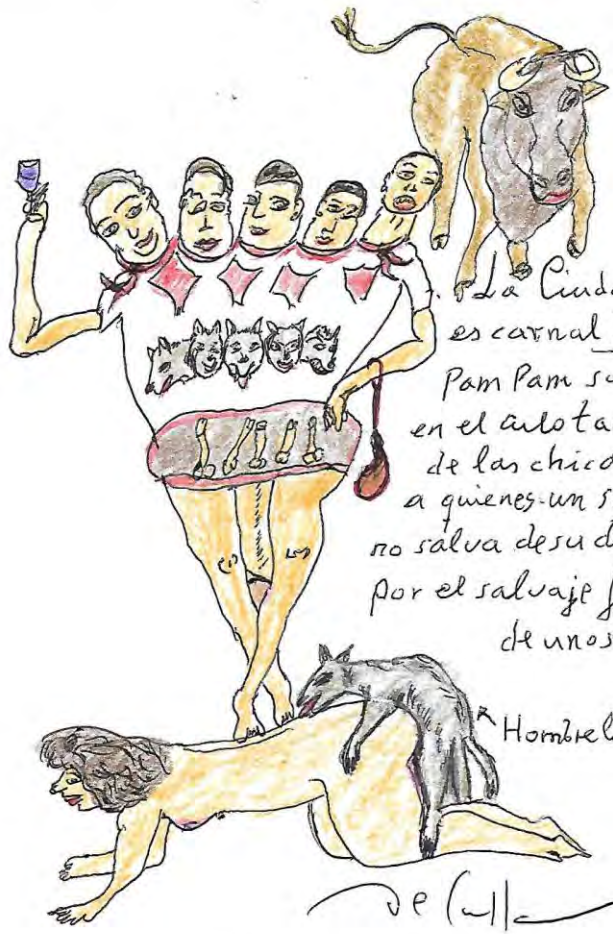 La Ciuda
es carnal
Pam Pam sa
en el culo ta
de las chica
a quienes un s
no salva de su d
por el salvaje
de unos
Hombrel